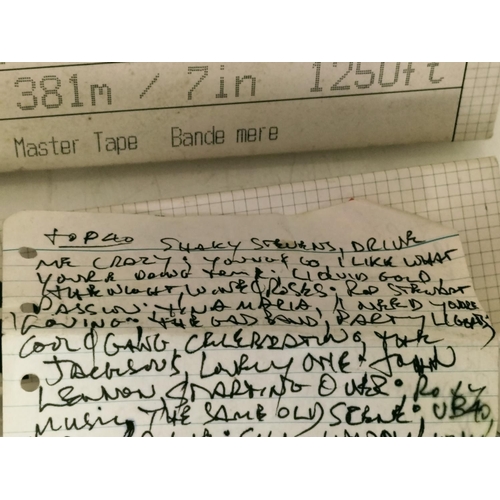 381m / 7in 1250ft
Master Tape Bande mere
TOP40 SHAKY STEVENS, DRIVE
ME CRAZY; YOUNG & CO I LIKE WHAT
YOUR DOING TO ME. LIQUID GOLD
THE NIGHT WINE & ROSES. ROD STEWART
PASSION. TINA MARIA, I NEED YOURE
LOVING. THE GAP BAND, PARTY LIGHTS,
COOL & GANG CELEBRATING, THE
JACKSONS, LOVELY ONE. JOHN
LENNON, STARTING OVER. ROXY
MUSIC, THE SAME OLD SCENE. UB40,